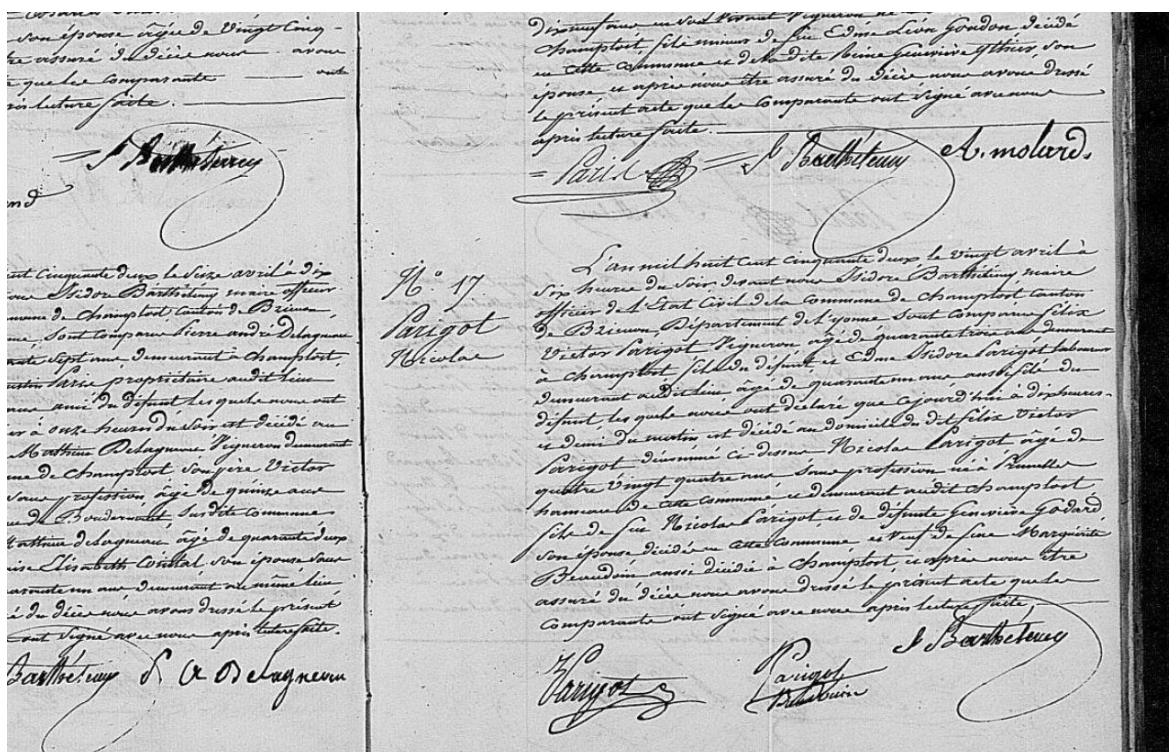 son épouse âgée de Vingt Cinq
tre assuré du décès nous avons
te que les comparants ont
après lecture faite.
I Barthélemy
nd
ent cinquante deux le Seize avril à dix
nous Isidore Barthélemy maire officier
commune de Champlost canton de Brienon
sont comparu Pierre andré Delagneau
quarante sept ans demeurant à Champlost
Paris propriétaire audit lieu
ans ami du défunt lesquels nous ont
hier à onze heures du Soir est décédé au
Mathieu Delagneau Vigneron demeurant
de Champlost Son père Victor
Sans profession âgé de quinze ans
de Boudernault susdite commune
Mathieu delagneau âgé de quarante deux
Elisabeth Son épouse Sans
quarante un ans demeurant au même lieu
du décès nous avons dressé le présent
ont Signé avec nous après lecture faite.
Barthélemy P A Delagneau
dixneuf ans en son Vivant Vigneron
Champlost fils mineur de feu Edme Léon Goudon décédé
en cette Commune et de la dite Reine Geneviève Ythier son
épouse et après nous être assuré du décès nous avons dressé
le présent acte que les Comparants ont Signé avec nous
après lecture faite.
Paris I Barthélemy A. molard.
N.° 17
Parigot
Nicolas
L'an mil huit cent cinquante deux le vingt avril à
Six heures du Soir devant nous Isidore Barthélemy maire
officier de l'Etat Civil de la Commune de Champlost canton
de Brienon, Département de l'yonne Sont Comparus félix
Victor Parigot Vigneron âgé de quarante trois ans demeurant
à Champlost fils du défunt, et Edme Isidore Parigot laboureur
demeurant audit lieu âgé de quarante un ans aussi fils du
défunt, lesquels nous ont déclaré que cejourd'hui à dix heures
et demi du matin est décédé au domicile du dit félix Victor
Parigot dénommé ci-dessus Nicolas Parigot âgé de
quatre Vingt quatre ans Sans profession né à Prunelles
hameau de cette Commune et demeurant audit Champlost
fils de feu Nicolas Parigot, et de défunte Geneviève Godard
Son épouse décédée en cette Commune et Veuf de feue Marguerite
Beaudoin aussi décédée à Champlost, et après nous être
assuré du décès nous avons dressé le présent acte que les
Comparants ont Signé avec nous après lecture faite,
I Barthélemy
V Parigot Parigot
Beaudoin